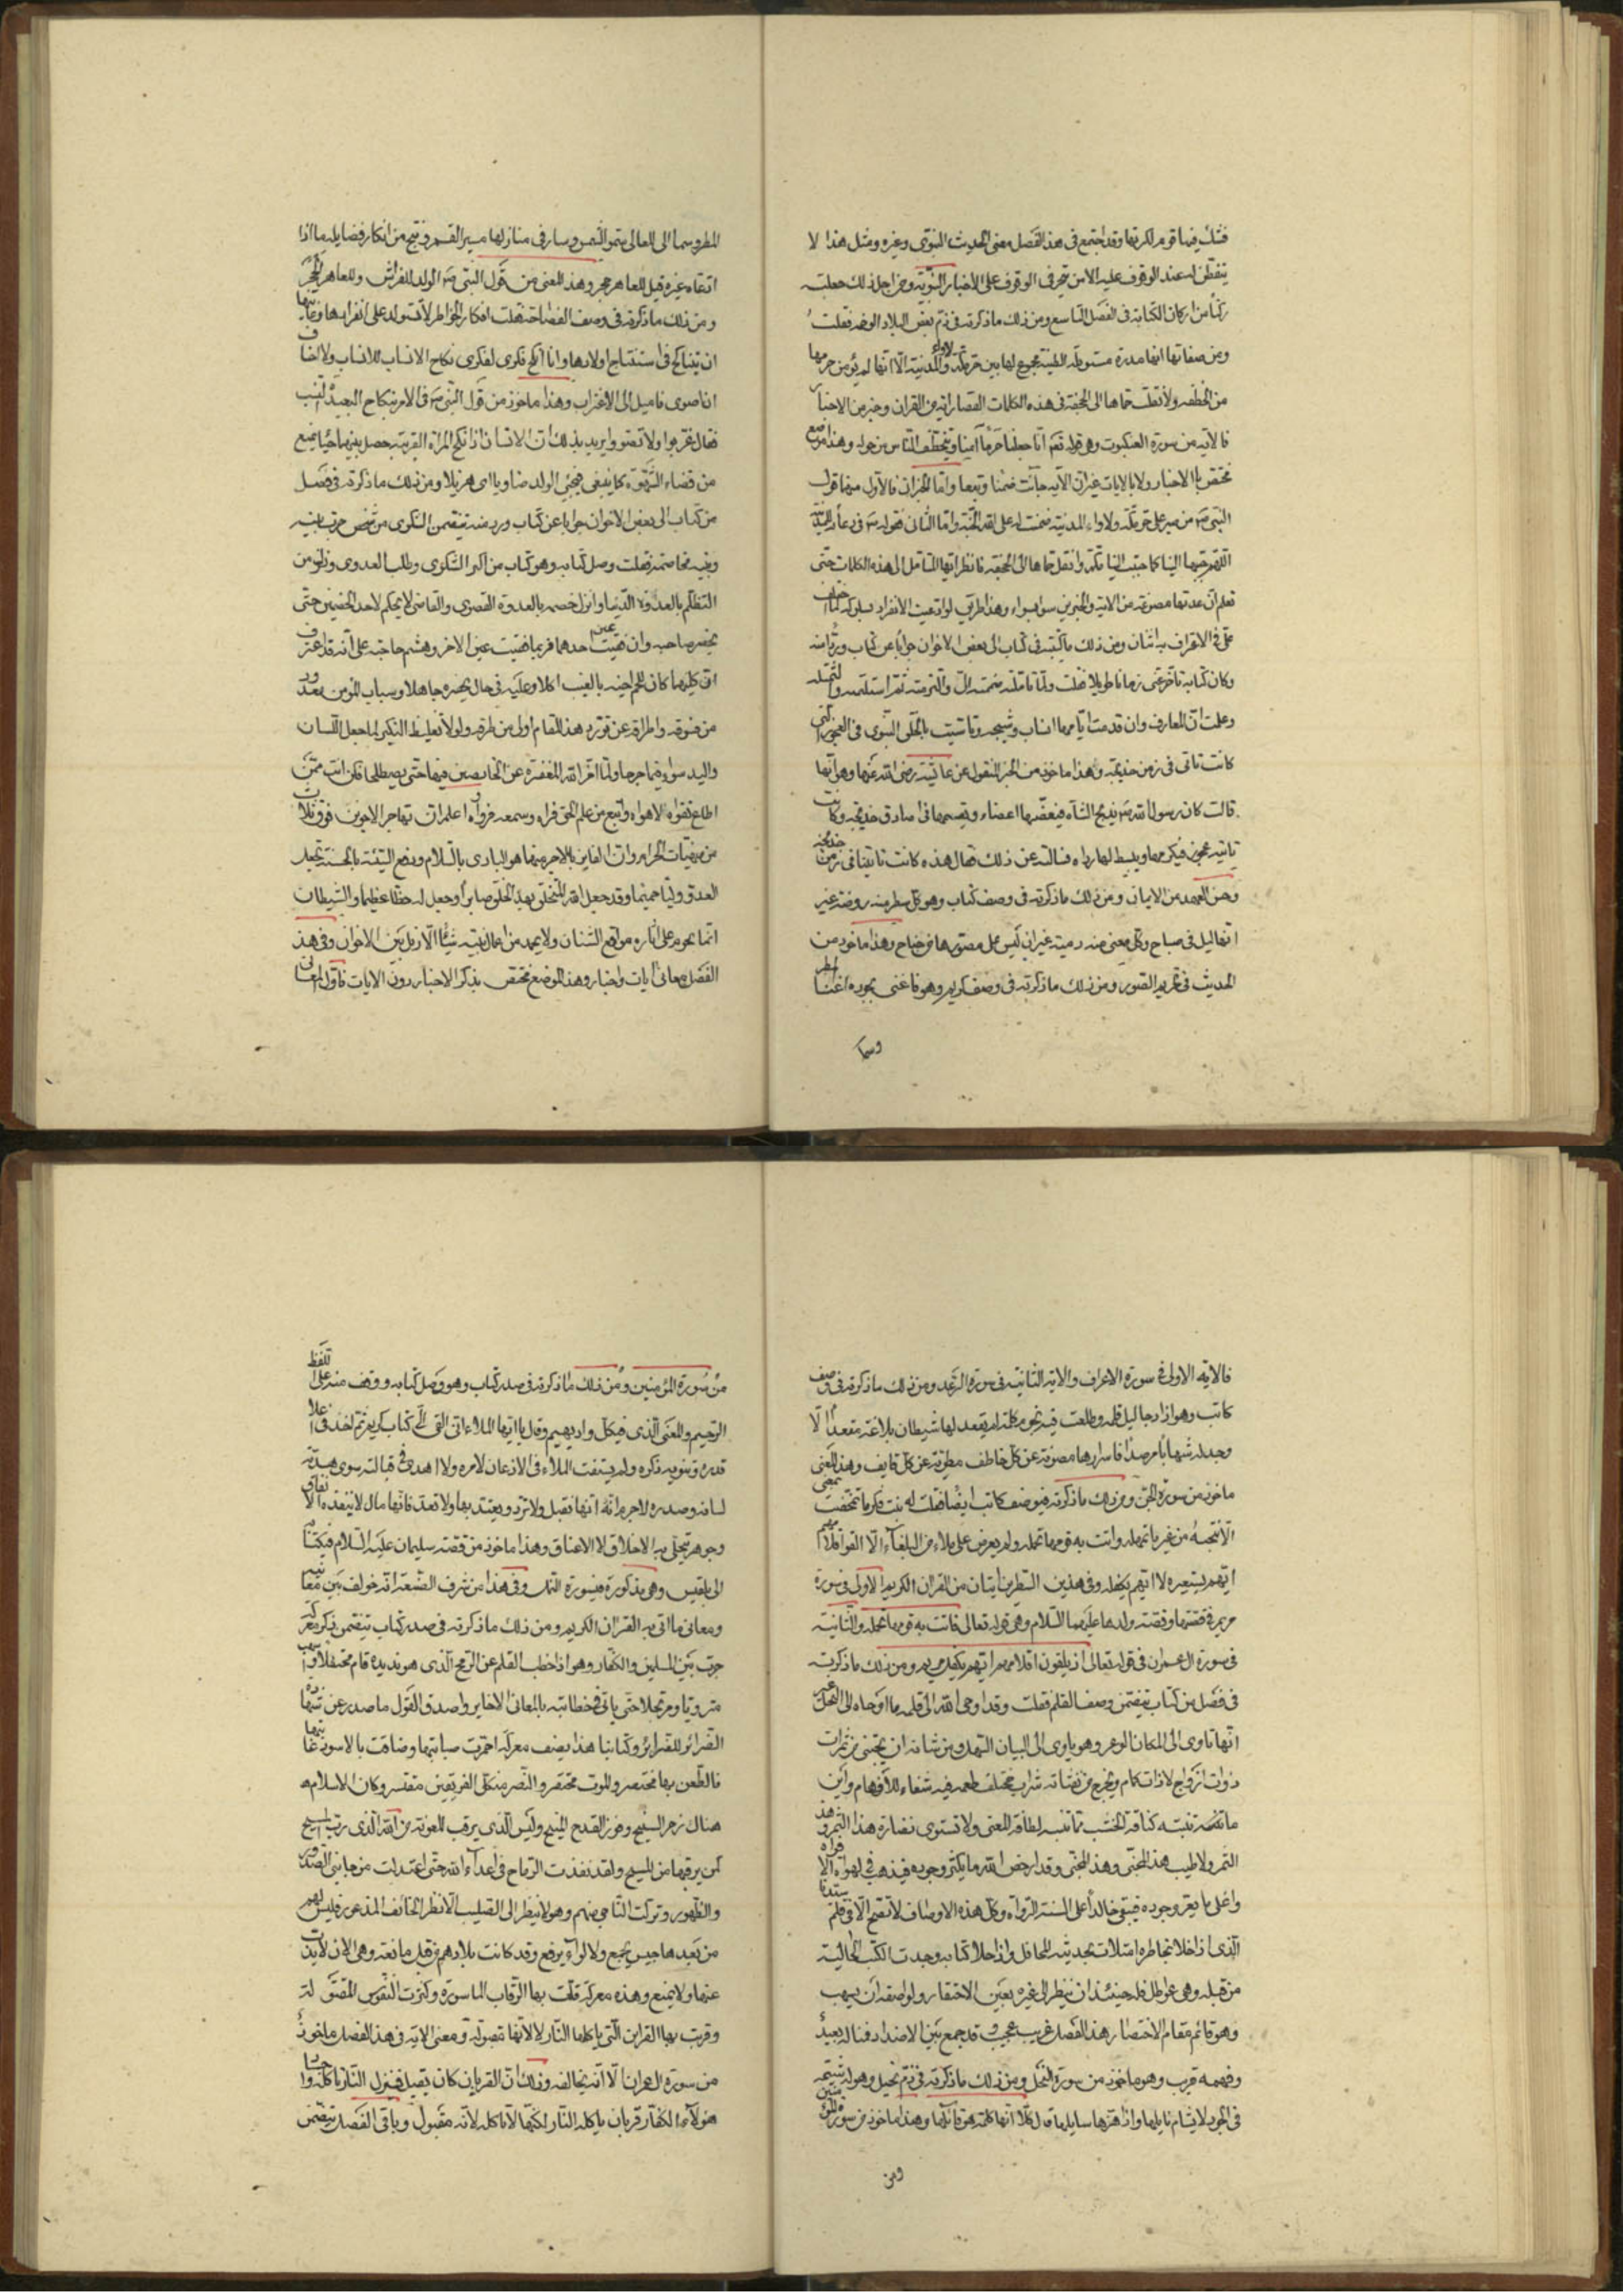 فتلك فيها قوم لكرتها وقد اجتمع فى هذا الفصل معنى الحديث النبوى وغيره ومثل هذا لا
يتفطن له عند الوقوف عليه الا من تبحر فى الوقوف على الاخبار النبوية ومن اجل ذلك جعلته
ركنا من اركان الكتابة فى الفصل التاسع ومن ذلك ما ذكرته فى ذم بعض البلاد الوخمة فقلت
ومن صفاتها انها مدرة مستوبلة الطينة مجموع لها بين حر مكة ولاواء المدينة الا انها لم يؤمن حرمها
من الخطفه ولا نقلت حماها الى الجحفة فى هذه الكلمات القصار اية من القران وخبر من الاخبار
فالاية من سورة العنكبوت وهى قوله تعم انا جعلنا حرما امنا ويتخطف الناس من حوله وهذا موضع
مختص بالاخبار ولا بالايات غير ان الاية جاءت ضمنا وتبعا واما الخبران فالاول منهما قول
النبى صم من صبر على حر مكة ولاواء المدينة ضمنت له على الله الجنة واما الثانى فقوله صم فى دعاء المدينة
اللهم حببها الينا كما حببت الينا مكة وانقل حماها الى الجحفة فانظر ايها المتامل الى هذه الكلمات حتى
تعلم ان عدتها مصوغة من الاية والخبرين سواء بسواء وهذا طريق لو ادعيت الانفراد بسلوكه لما اختلف
على فى الاعتراف به اثنان ومن ذلك ما كتبته فى كتاب الى بعض الاخوان جوابا عن كتاب ورد منه
وكان كتابه تاخر عنى زمانا طويلا فقلت ولما تاملته ضممته الى والتزمته ثم استلمته
وعلمت ان المعارف وان قدمت ايامها انساب وشيجة وتاسيت بالخلق النبوى فى العجوز التى
كانت تاتى فى زمن خديجة وهذا ماخوذ من الخبر المنقول عن عائشة رضى الله عنها وهو انها
قالت كان رسول الله صم يذبح الشاة فيعضيها اعضاء ويقسمها فى صدائق خديجة وكانت
تاتيه عجوز فيكرمها ويبسط لها رداه فسالته عن ذلك فقال هذه كانت تاتينا فى زمن خديجة
وحسن العهد من الايمان ومن ذلك ما ذكرته فى وصف كتاب وهو كل سطر منه روضة غير
انها ليل فى صباح وكل معنى منه دمية غير ان ليس على مصورها من جناح وهذا ماخوذ من
الحديث فى تحريم الصور ومن ذلك ما ذكرته فى وصف كريم وهو فاغنى بجوده اغناء المطر
وسما
المطر وسما الى المعالى سمو الشمس وسار فى منازلها مسير القمر ونتج من ابكار فضايله ما اذا
ادعاه غيره قيل للعاهر الحجر وهذا المعنى من قول النبى صم الولد للفراش وللعاهر الحجر
ومن ذلك ما ذكرته فى وصف الفصاحة فقلت افكار الخواطر لا تستولد على انفرادها وغايتها
ان يتناكح فى استنتاج اولادها وانا انكح فكرى لفكرى نكاح الانساب للانساب ولا اخاف
ان اضوى فاميل الى الاغتراب وهذا ماخوذ من قول النبى صم فى الامر بنكاح البعيد النسب
فقال غربوا ولا تضووا يريد بذلك ان الانسان اذا نكح المراة القريبة حصل بينهما حيا يمنع
من قضاء الشهوة كما ينبغى فيجئ الولد ضاويا اى هزيلا ومن ذلك ما ذكرته فى فصل
من كتاب الى بعض الاخوان جوابا عن كتاب ورد منه يتضمن الشكوى من شخص جرت بينه
وبينه مخاصمة فقلت وصل كتابه وهو كتاب من اكبر الشكوى وطلب العدوى ونزل من
التظلم بالعدوة الدنيا وانزل خصمه بالعدوة القصوى والقاضى لا يحكم لاحد الخصمين حتى
يحضر صاحبه وان فقئت عين احدهما فربما فقئت عين الاخر وهشم حاجبه على انه قد اعترف
ان كليهما كان للحم اخيه بالغيب اكلا وعليه فى حال حضره جاهلا وسباب المؤمن معدود
من فسوقه واطراقه عن تورد هذا المقام اولى من طروقه ولولا تغليظ النكير لما جعل اللسان
واليد سواء فى اجرامها ولما اخر الله المغفرة عن المتخاصمين فيها حتى يصطلحا فكن انت ممن
اطاع تقواه لا هواه واتبع من علم الحق فراه وسمعه فرواه واعلم ان تهاجر الاخوين فوق ثلاث
من مقتضيات الحرام وان الفائز بالاجر منهما هو البادى بالسلام ودفع السيئة بالحسنة يجعل
العدو وليا حميما وقد جعل الله المتخلق بهذا الخلق صابرا وجعل له حظا عظيما والشيطان
انما يحوم على اثارة مواقع الشنان ولا يحمد من اعمال بنيه شيئا الا نزيل بين الاخوان وفى هذا
الفصل معانى ايات واخبار وهذا الموضع مختص بذكر الاخبار دون الايات فاول المعانى
فالاية الاولى فى سورة الاعراف والاية الثانية فى سورة الرعد ومن ذلك ما ذكرته فى وصف
كاتب وهو اذا دجا ليل قلمه وطلعت فيه نجوم كلمه لم يقعد لها شيطان بلاغة مقعدا الا
وجد له شهابا مرصدا فاسرارها مصونة عن كل خاطف مطوية عن كل قايف وهذا المعنى
ماخوذ من سورة الجن ومن ذلك ما ذكرته فى وصف كاتب ايضا فقلت له بنت فكر ما تمخضت بمعنى
الا نتجته من غير ما تمهله واتت به قومها تحمله ولم يعرض على ملاء من البلغاء الا القوا اقلامهم
ايهم يستعيره لا ايهم يكفله وفى هذين السطرين ايتان من القران الكريم الاولى فى سورة
مريم فى قصتها وقصة ولدها عليهما السلام وهى قوله تعالى فاتت به قومها تحمله والثانية
فى سورة ال عمران فى قوله تعالى اذ يلقون اقلامهم ايهم يكفل مريم ومن ذلك ما ذكرته
فى فصل من كتاب يتضمن وصف القلم فقلت وقد اوحى الله الى قلمه ما اوحاه الى النحل غير
انها تاوى الى المكان الوعر وهو ياوى الى البيان السهل ومن شانه ان يجتنى من ثمرات
ذوات ازواج لا ذات اكمام ويخرج من نفثاته شراب مختلف طعمه فيه شفاء للافهام واين
ما تنبته كثافة الخشب مما تنبته لطافة المعنى ولا تستوى نضارة هذا الثمر وهذا
الثمر ولا طيب هذا المجنى وهذا المجنى وقد ارخص الله ما يكثر وجوده فيذهب فى لهواة الافواه
واغلى ما يعز وجوده فيبقى خالدا على السنة الرواة وكل هذه الاوصاف لا تصح الا فى قلم سيدنا
الذى اذا خلا بخاطره امتلات بحديثه المحافل واذا جلا كتابه وجدت الكتب الحالية
من قبله وهى عواطل فله حينئذ ان ينظر الى غيره بعين الاحتقار ولواصفه ان يسهب
وهو قائم مقام الاختصار هذا الفصل غريب عجيب وقد جمع بين الاضداد فمناله بعيد
وفهمه قريب وهو ماخوذ من سورة النحل ومن ذلك ما ذكرته فى ذم بخيل وهو له شيمة
فى الجود لا يشام نايلها واذا هزها سايلها قال كلا انها كلمة هو قائلها وهذا ماخوذ من سورة المؤمنين
ومن
من سورة المؤمنين ومن ذلك ما ذكرته فى صدر كتاب وهو وصل كتابه ووقف منه على اللفظ
الرخيم والمعنى الذى فى كل واد يهيم وقال يا ايها الملاء انى القى الى كتاب كريم ثم اخذ فى اعلاء
قدره وتنويه ذكره ولم يستفت الملاء فى الاذعان لامره ولا اهدى فى قبالته سوى هدية
لسانه وصدره لا جرم انه انها تقبل ولا ترد ويعتد بها ولا تعد فانها مال لا ينفده الانفاق
وجوهر يتحلى به الاخلاق لا الاعناق وهذا ماخوذ من قصة سليمان عليه السلام فى كتابه
الى بلقيس وهى مذكورة فى سورة النمل وفى هذا من شرف الصنعة انه خولف بين معانيه
ومعانى ما اتى به القران الكريم ومن ذلك ما ذكرته فى صدر كتاب يتضمن ذكر معركة
جرت بين المسلمين والكفار وهو اذا خطب القلم عن الرمح الذى هو نديده قام محتفلا واسهب
مترويا ومرتجلا حتى ياتى فى خطابته بالمعانى الاخاير واصدق القول ما صدر عن شهادة
الضرائر للضرائر وكتابنا هذا يصف معركة احمرت صبابتها وضاقت بالاسود غابتها
فالطعن بها محتضر والموت محتقر والنصر من كلى الفريقين مقتسم وكان الاسلام
هناك زجر السنيح وفوز القدح المنيح وليس الذى يرقب المعونة من الله الذى رب المسيح
كمن يرقبها من المسيح ولقد نفذت الرماح فى اعداء الله حتى اعتدلت من جانبى الصدور
والظهور وتركت الناجى منهم وهو لا ينظر الى الصليب الا نظر الخائف المذعور فليس لهم
من بعدها جيش يجمع ولا لواء يرفع وقد كانت بلادهم من قبل مانعة وهى الان لا يذب
عنها ولا يمنع وهذه معركة قلت بها الرقاب الماسورة وكثرت النفوس المقتولة
وقربت بها القرابين التى ياكلها النار لا لانها مقبولة ومعنى الاية فى هذا الفصل ماخوذ
من سورة ال عمران الا انه يخالفه وذلك ان القربان كان يقبل فينزل النار تاكله واجساد
هؤلاء الكفار قربان ياكله النار لكنها لا تاكله لانه مقبول وباقى الفصل يتضمن